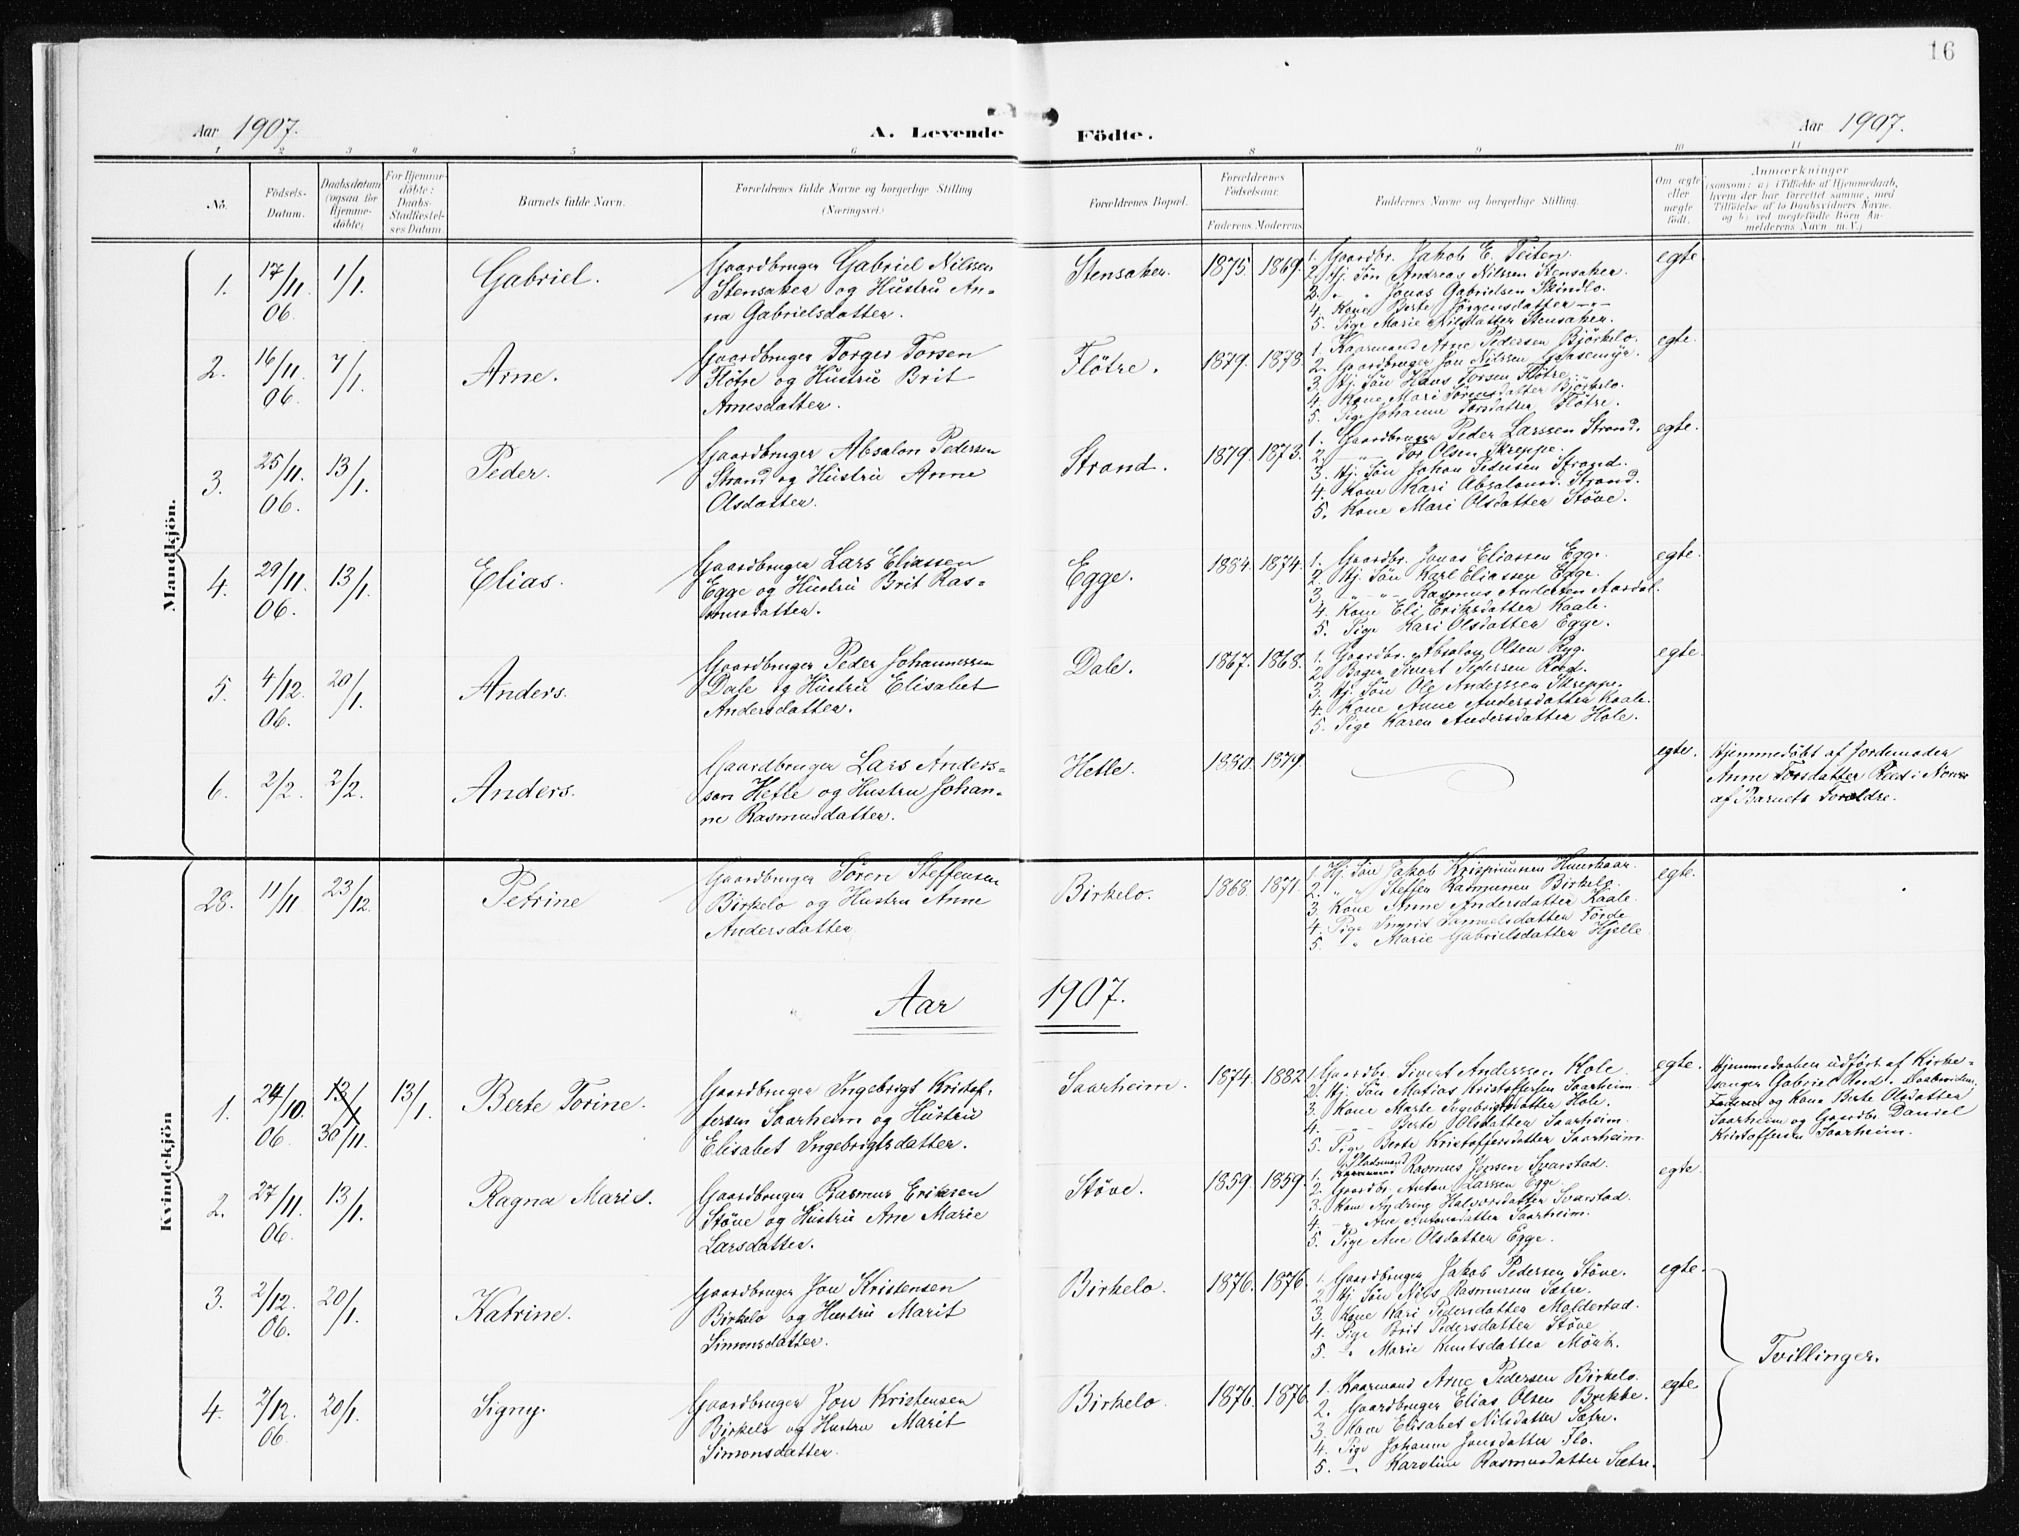 16
Aar 1907.
A. Levende Födte.
Aar 1907.
1 2 3 4 5 6 8 9 10 11
No.
Födsels-Datum.
Daabsdatum (ogsaa for Hjemmedöbte)
For Hjemmedöbte: Daabs-Stadfæstelses Datum.
Barnets fulde Navn.
Forældrenes fulde Navne og borgerlige Stilling (Næringsvei.)
Forældrenes Bopæl.
Forældrenes Födselsaar.
Faderens. Moderens.
Faddernes Navne og borgerlige Stilling.
Om ægte eller uægte födt.
Anmærkninger
(saasom: a) i Tilfælde af Hjemmedaab, hvem der har forrettet samme, med Tilføielse af to Daabsvidners Navne, og b) ved uægtefödte Börn Anmelderens Navn m. V.)
Mandkjön.
1. 17/11 06. 1/1. Gabriel.
Gaardbruger Gabriel Nilssen
Stensaker og Hustru An-
na Gabrielsdatter.
Stensaker. 1875 1869.
1. Gaardbr. Jakob E. Teiten
2. Hj. Søn Andreas Nilssen Stensaker.
3. " " Jonas Gabrielsen Skindlo.
4. Kone Berte Jörgensdatter -"-
5. Pige Marie Nilsdatter Stensaker.
egte.
2. 16/11 06. 7/1. Arne.
Gaardbruger Torger Torsen
Flötre og Hustru Brit
Arnesdatter.
Flötre. 1879. 1878.
1. Kaarmand Arne Pedersen Björkelo.
2. Gaardbruger Jon Nilssen Gaasemyr.
3. Hj. Søn Hans Torsen Flötre.
4. Kone Mari Sörensdatter Björkelo.
5. Pige Johanne Torsdatter Flötre.
egte.
3. 25/11 06. 13/1. Peder.
Gaardbruger Absalon Pedersen
Strand og Hustru Anne
Olsdatter.
Strand. 1879. 1873.
1. Gaardbruger Peder Larssen Strand.
2. -"- Tor Olsen Skreppe.
3. Hj. Søn Johan Pedersen Strand.
4. Kone Kari Absalonsd. Strand.
5. Kone Mari Olsdatter Støve.
egte.
4. 29/11 06. 13/1. Elias.
Gaardbruger Lars Eliassen
Egge og Hustru Brit Ras=
musdatter.
Egge. 1884. 1874.
1. Gaardbr. Jonas Eliassen Egge.
2. Hj. Søn Karl Eliassen Egge.
3. -"- -"- Rasmus Andersen Aardal.
4. Kone Eli Eriksdatter Kaale.
5. Pige Kari Olsdatter Egge.
egte.
5. 4/12. 06. 20/1. Anders.
Gaardbruger Peder Johannessen
Dale og Hustru Elisabet
Andersdatter.
Dale. 1867. 1868.
1. Gaardbr. Absalon Olsen Ryg.
2. Bager Sivert Pedersen Reed.
3. Hj. Søn Ole Anderssen Skreppe.
4. Kone Anne Andersdatter Kaale.
5. Pige Karen Andersdatter Hole.
egte.
6. 2/2. 2/2. Anders.
Gaardbruger Lars Anders=
sen Hetle og Hustru Johan=
ne Rasmusdatter.
Hetle. 1880. 1879.
egte.
Hjemmedöbt af Jordemoder
Anne Torsdatter Reed i Nærv.
af Barnets Forældre.
Kvindekjön
28. 11/11 23/12. Petrine
Gaardbruger Sören Steffensen
Birkelo og Hustru Anne
Andersdatter
Birkelo. 1868. 1871.
1. Hj. Søn Jakob Krispinussen
2. " " Steffen Rasmussen Birkelo.
3. Kone Anne Andersdatter Kaale.
4. Pige Ingrid Samuelsdatter Förde
5. " Marie Gabrielsdatter Hjelle
egte.
Aar 1907.
1. 24/10. 06. 13/1 30/11. 13/1. Berte Torine.
Gaardbruger Ingebrigt Kristof-
fersen Saarheim og Hustru
Elisabet Ingebrigtsdatter.
Saarheim. 1874. 1882.
1. Gaardbr. Sivert Anderssen Hole.
2. Hj. Søn Matias Kristoffersen Saarheim.
3. Kone Marte Ingebrigtsdatter Hole.
4. -"- Berte Olsdatter Saarheim.
5. Pige Berte Kristoffersdatter Saarheim.
egte.
Hjemmedaaben udført af Kirke=
sanger Gabriel Reed. Daabsvidner:
Faderen og Kone Berte Olsdatter
Saarheim og Gaardbr. Daniel
Kristoffersen Saarheim.
2. 27/11. 06. 13/1. Ragna Marie.
Gaardbruger Rasmus Eriksen
Støve og Hustru Ane Marie
Larsdatter.
Støve. 1859. 1859.
1. Pladsmand Rasmus Jensen Svarstad.
2. Gaardbr. Anton Larssen Egge.
3. Kone Andrine Halvorsdatter Svarstad.
4. -"- Ane Antonsdatter Saarheim.
5. Pige Ane Olsdatter Egge.
egte.
3. 2/12. 06. 20/1. Katrine.
Gaardbruger Jon Kristensen
Birkelo og Hustru Marit
Simonsdatter.
Birkelo. 1876. 1876.
1. Gaardbruger Jakob Pedersen Støve.
2. Hj. Søn Nils Rasmussen Sætre.
3. Kone Kari Pedersdatter Moldestad.
4. Pige Brit Pedersdatter Støve
5. " Marie Knutsdatter Mönk.
egte.
Tvillinger.
4. 2/12. 06. 20/1. Signy.
Gaardbruger Jon Kristensen
Birkelo og Hustru Marit
Simonsdatter.
Birkelo. 1876. 1876.
1. Kaarmand Arne Pedersen Birkelo.
2. Gaardbruger Elias Olsen Brekke.
3. Kone Elisabet Nilsdatter Sætre.
4. Pige Johanne Jonsdatter Flo.
5. -"- Karoline Rasmusdatter Sætre.
egte.